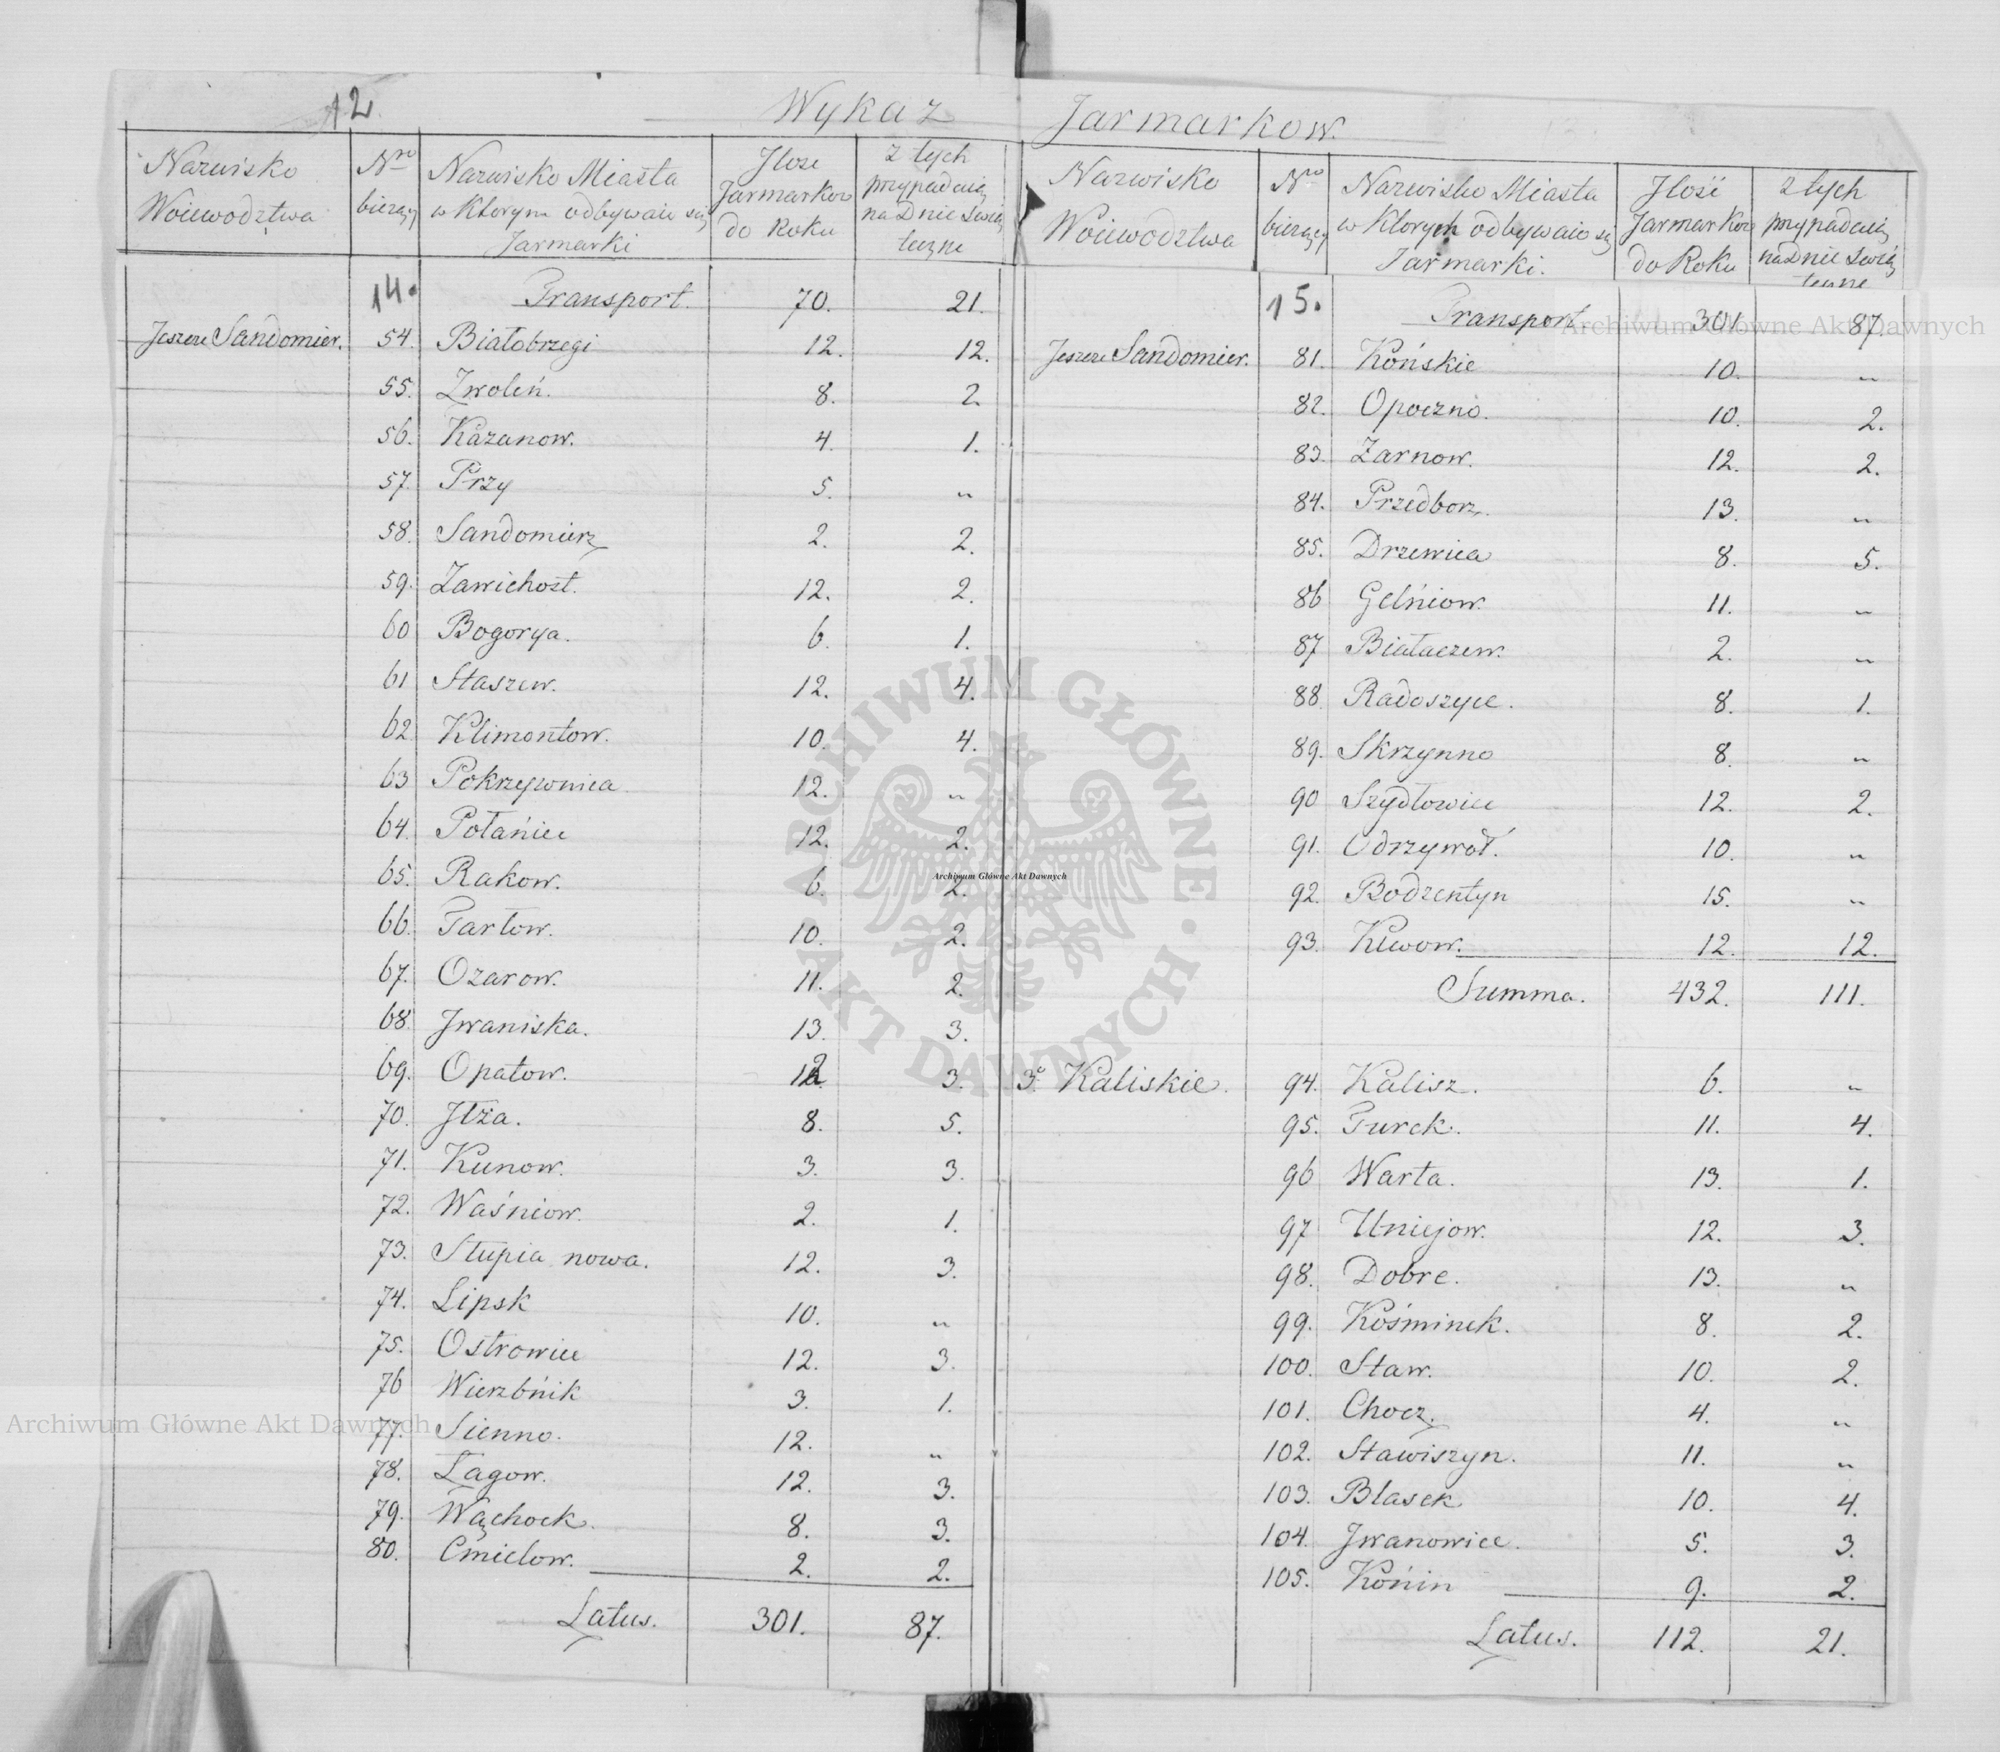 12.
Wykaz Jarmarkow.
Nazwisko Woiewodztwa | Nro bieżący | Nazwisko Miasta w Ktorym odbywaią się Jarmarki | Jlosc Jarmarkow do Roku | z tych przypadaią na Dnie Swią teczne
14. Transport. 70. 21.
Jeszcze Sandomier. 54. Białobrzegi 12. 12.
55. Zwoleń. 8. 2
56. Kazanow. 4. 1.
57. Przy 5. „
58. Sandomierz 2. 2.
59. Zawichost. 12. 2.
60 Bogorya. 6. 1.
61 Staszew. 12. 4.
62 Klimontow. 10. 4.
63 Pokrzywnica 12. „
64. Połaniec 12. 2.
65. Rakow. 6. 2.
66. Tarłow. 10. 2.
67. Ozarow. 11. 2.
68. Jwaniska. 13. 3.
69. Opatow. 12. 3.
70. Jłża. 8. 5.
71. Kunow. 3. 3.
72. Waśniow. 2. 1.
73. Słupia nowa. 12. 3.
74. Lipsk 10. „
75. Ostrowiec 12. 3.
76 Wierzbńik 3. 1.
77. Sienno. 12. „
78. Łagow. 12. 3.
79. Wąchock. 8. 3.
80. Cmielow. 2. 2.
Latus. 301. 87.
Nazwisko Woiewodztwa | Nro bieżący | Nazwisko Miasta w Ktorych odbywaią się Jarmarki. | Jlość Jarmarkow do Roku | z tych przypadaią na Dnie Swią teczne
15. Transport 301. 87.
Jeszcze Sandomier. 81. Końskie 10. „
82. Opoczno. 10. 2.
83. Żarnow. 12. 2.
84. Przedborz. 13. „
85. Drzewica 8. 5.
86 Gelńiow. 11. „
87 Białaczew. 2. „
88. Radoszyce. 8. 1.
89. Skrzynno 8. „
90 Szydłowiec 12. 2.
91. Odrzywoł. 10. „
92. Bodzentyn 15. „
93. Kuwow. 12. 12.
Summa. 432. 111.
3e Kaliskie. 94. Kalisz. 6. „
95. Turek. 11. 4.
96 Warta. 13. 1.
97 Uniejow. 12. 3.
98. Dobre. 13. „
99. Kośminek. 8. 2.
100. Staw. 10. 2.
101. Chocz. 4. „
102. Stawiszyn. 11. „
103. Blasek 10. 4.
104. Jwanowice. 5. 3.
105. Końin 9. 2.
Latus. 112. 21.
Archiwum Główne Akt Dawnych
Archiwum Główne Akt Dawnych
Archiwum Główne Akt Dawnych
ARCHIWUM GŁÓWNE · AKT DAWNYCH ·